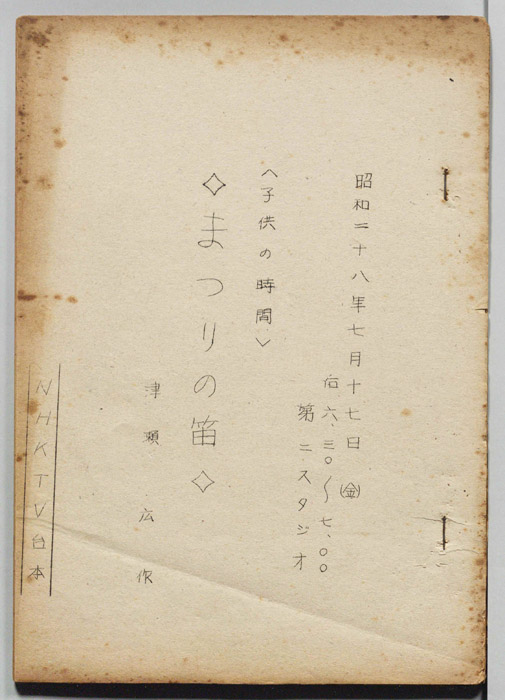 昭和二十八年七月十七日(金)
后六、三〇～七、〇〇
第二スタジオ
〈子供の時間〉
◇まつりの笛◇
津瀬広作
NHKTV台本